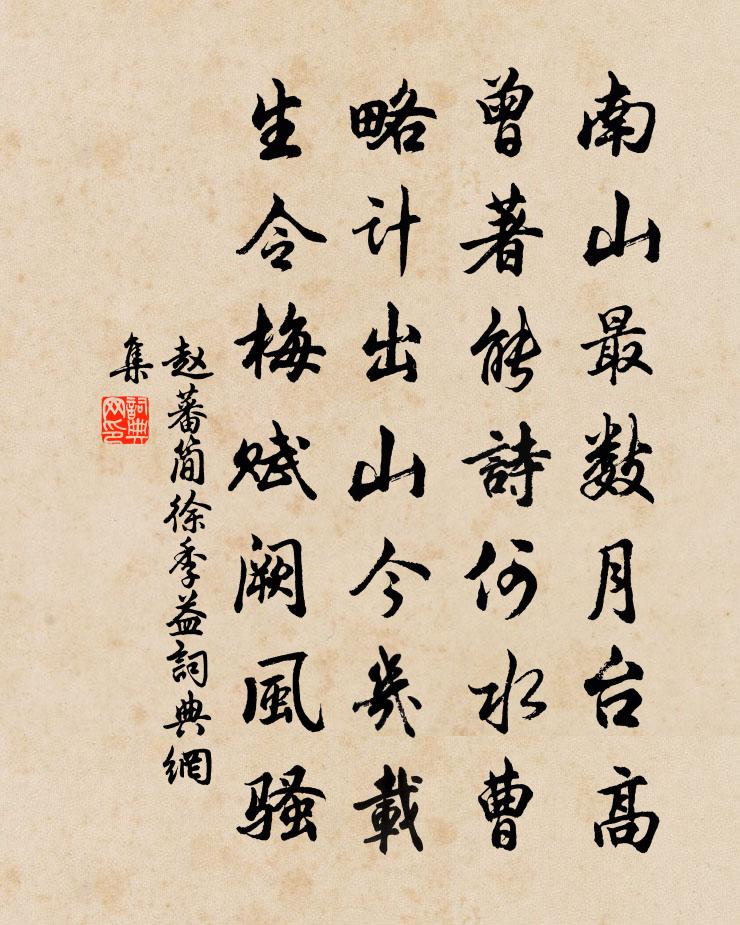 南山最数月台高
曾著能詩何水曹
略计出山今幾載
生令梅赋阙風骚
赵蕃简徐季益詞典網
集
詞典網印